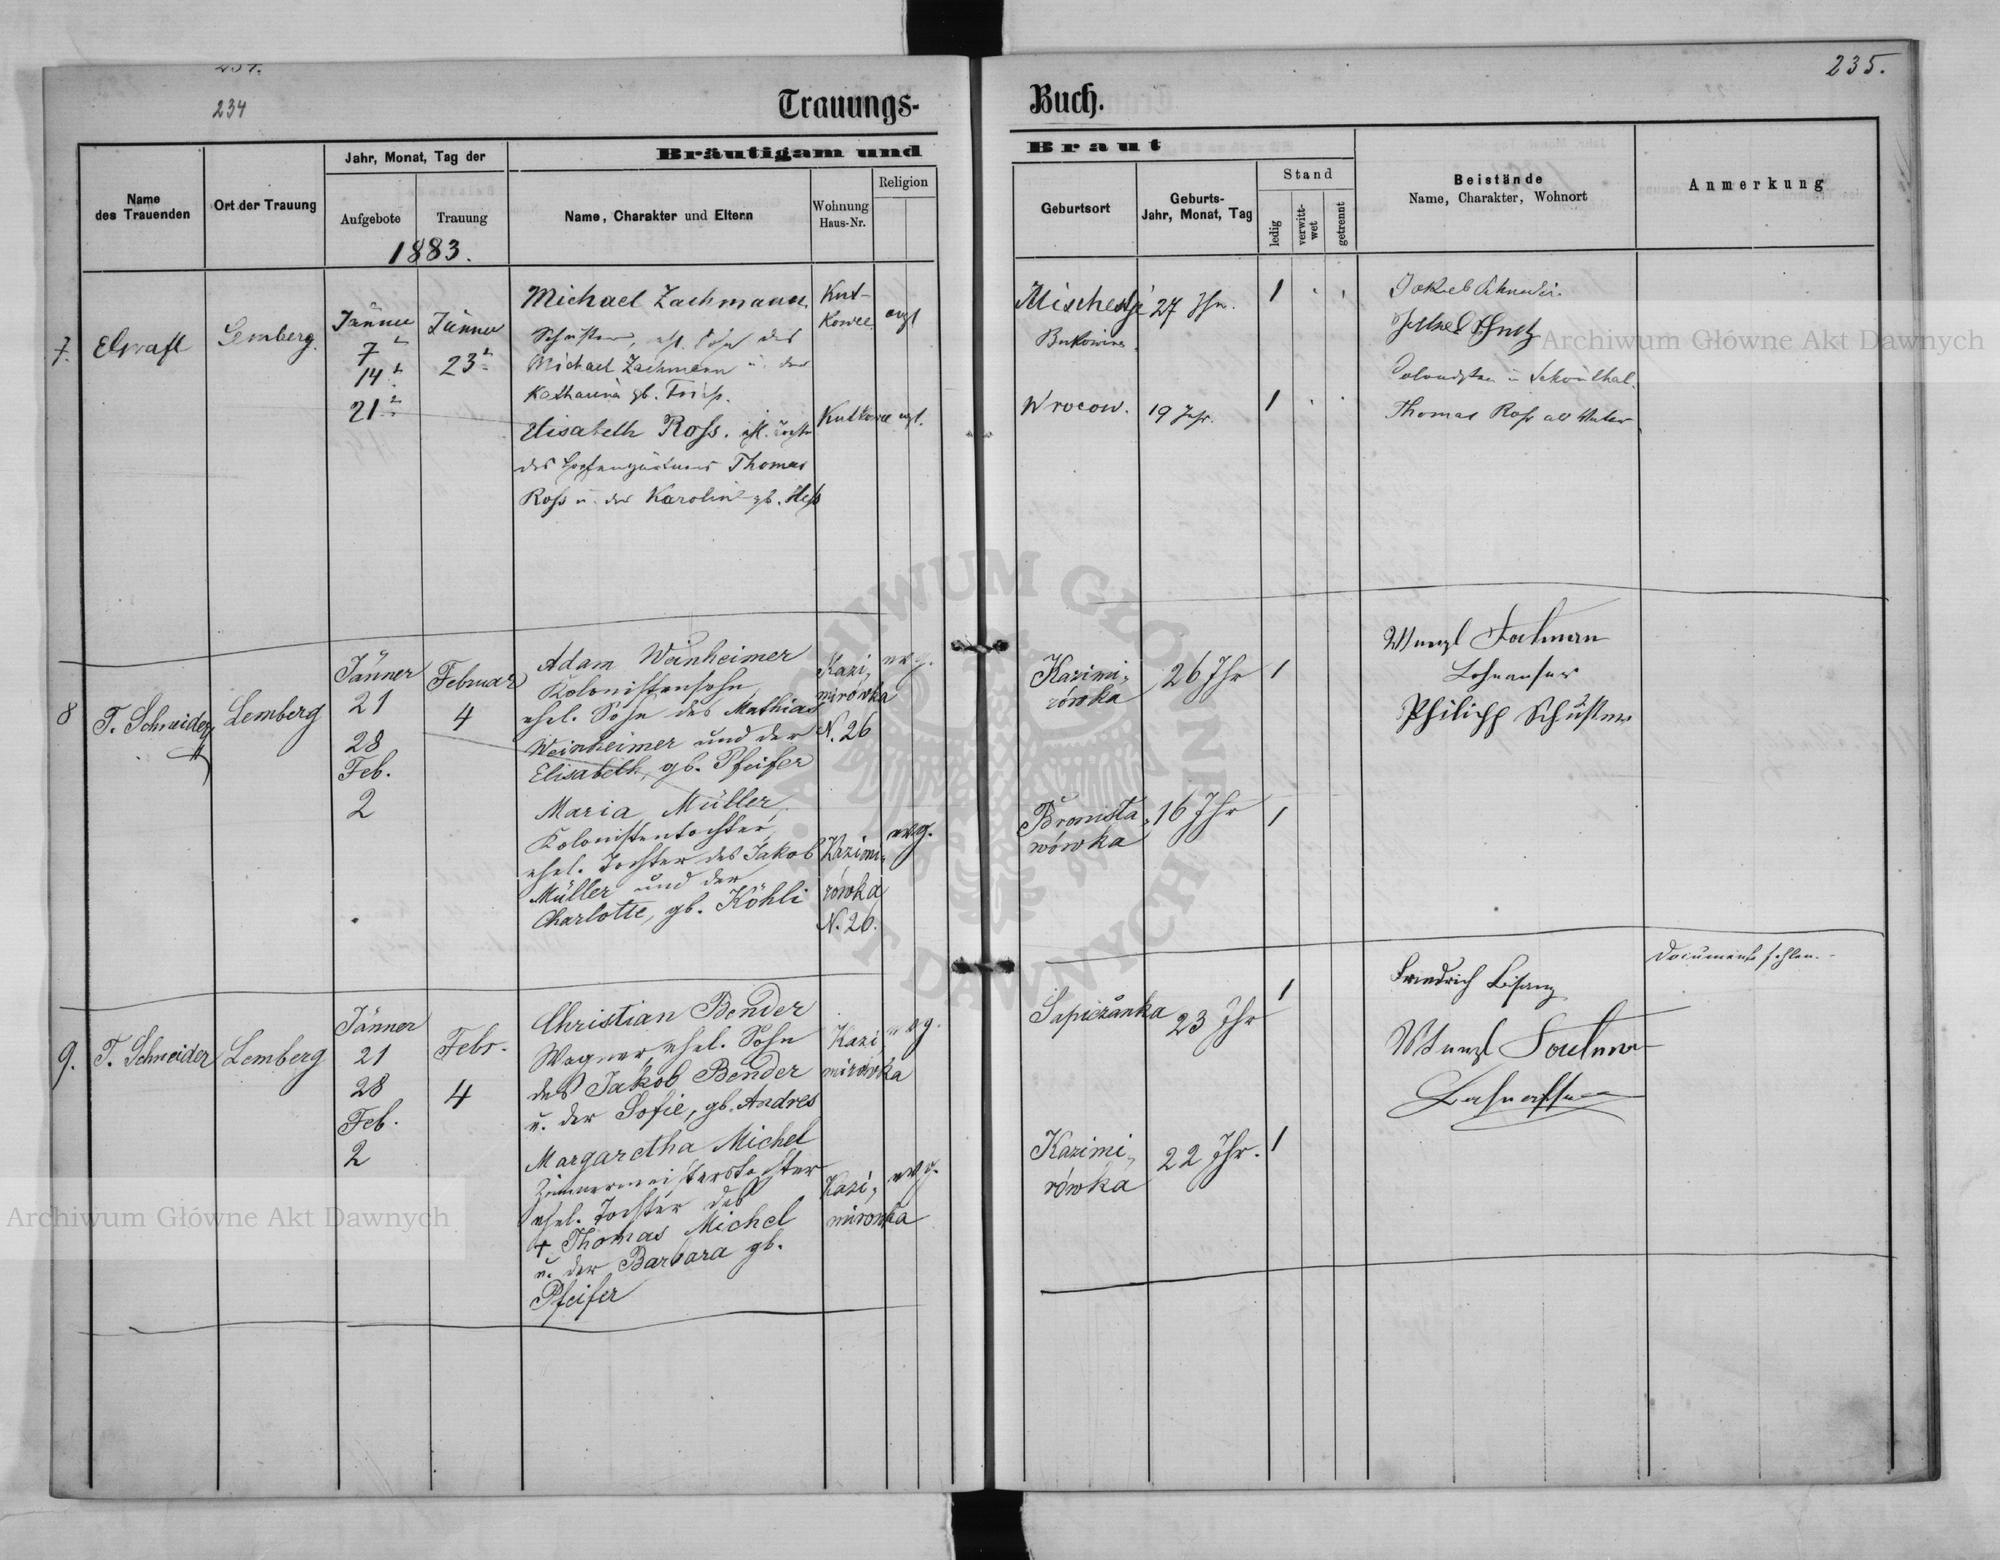 234
235.
Trauungs-
Buch.
Name
des Trauenden
Ort der Trauung
Jahr, Monat, Tag der
Aufgebote
Trauung
1883.
Bräutigam und
Name, Charakter und Eltern
Wohnung
Haus-Nr.
Religion
Braut
Geburtsort
Geburts-
Jahr, Monat, Tag
Stand
ledig
verwitt-
wet
getrennt
Beistände
Name, Charakter, Wohnort
Anmerkung
7.
Lemberg.
Jänner
7
14
21
Jänner
23
Michael Zachmann
Schuster, ehl. Sohn des
Michael Zachmann u. der
Katharina gb.
Kut-
kowce
evgl
Bukowina.
27 Jhr.
1
Elisabeth Ross, ehl. Tochter
des Thomas
Ross u. der Karolina gb. Hess
Kutkowce evgl.
Wrocow.
19 Jahr.
1
Jakob Schneider
Thomas Ross als Vater
8
T. Schneider
Lemberg
Jänner
21
28
Feb.
2
Februar
4
Adam Weinheimer
Kolonistensohn,
ehel. Sohn des Mathias
Weinheimer und der
Elisabeth, gb. Pfeifer
Kazi,
mirówka
N. 26
evg.
Kazimi,
rówka
26 Jhr
1
Maria Müller,
Kolonistentochter,
ehel. Tochter des Jakob
Müller und der
Charlotte, gb. Köhli
Kazimi,
rówka
N. 26.
evg.
Bronisła,
wówka
16 Jhr
1
Philipp Schuster
9.
T. Schneider
Lemberg
Jänner
21
28
Feb.
2
Febr.
4
Christian Bender
Wagner, ehel. Sohn
des Jakob Bender
u. der Sofie, gb. Andres
Kazi
mirówka
evg.
Sapieżanka
23 Jhr
1
Margaretha Michel
Zimmermeisterstochter
ehel. Tochter des
+ Thomas Michel
u. der Barbara gb.
Pfeifer
Kazi,
mirowka
evg.
Kazimi,
rówka
22 Jhr.
1
Friedrich Bisanz
Documente fehlen.
Archiwum Główne Akt Dawnych
Archiwum Główne Akt Dawnych
ARCHIWUM GŁÓWNE AKT DAWNYCH